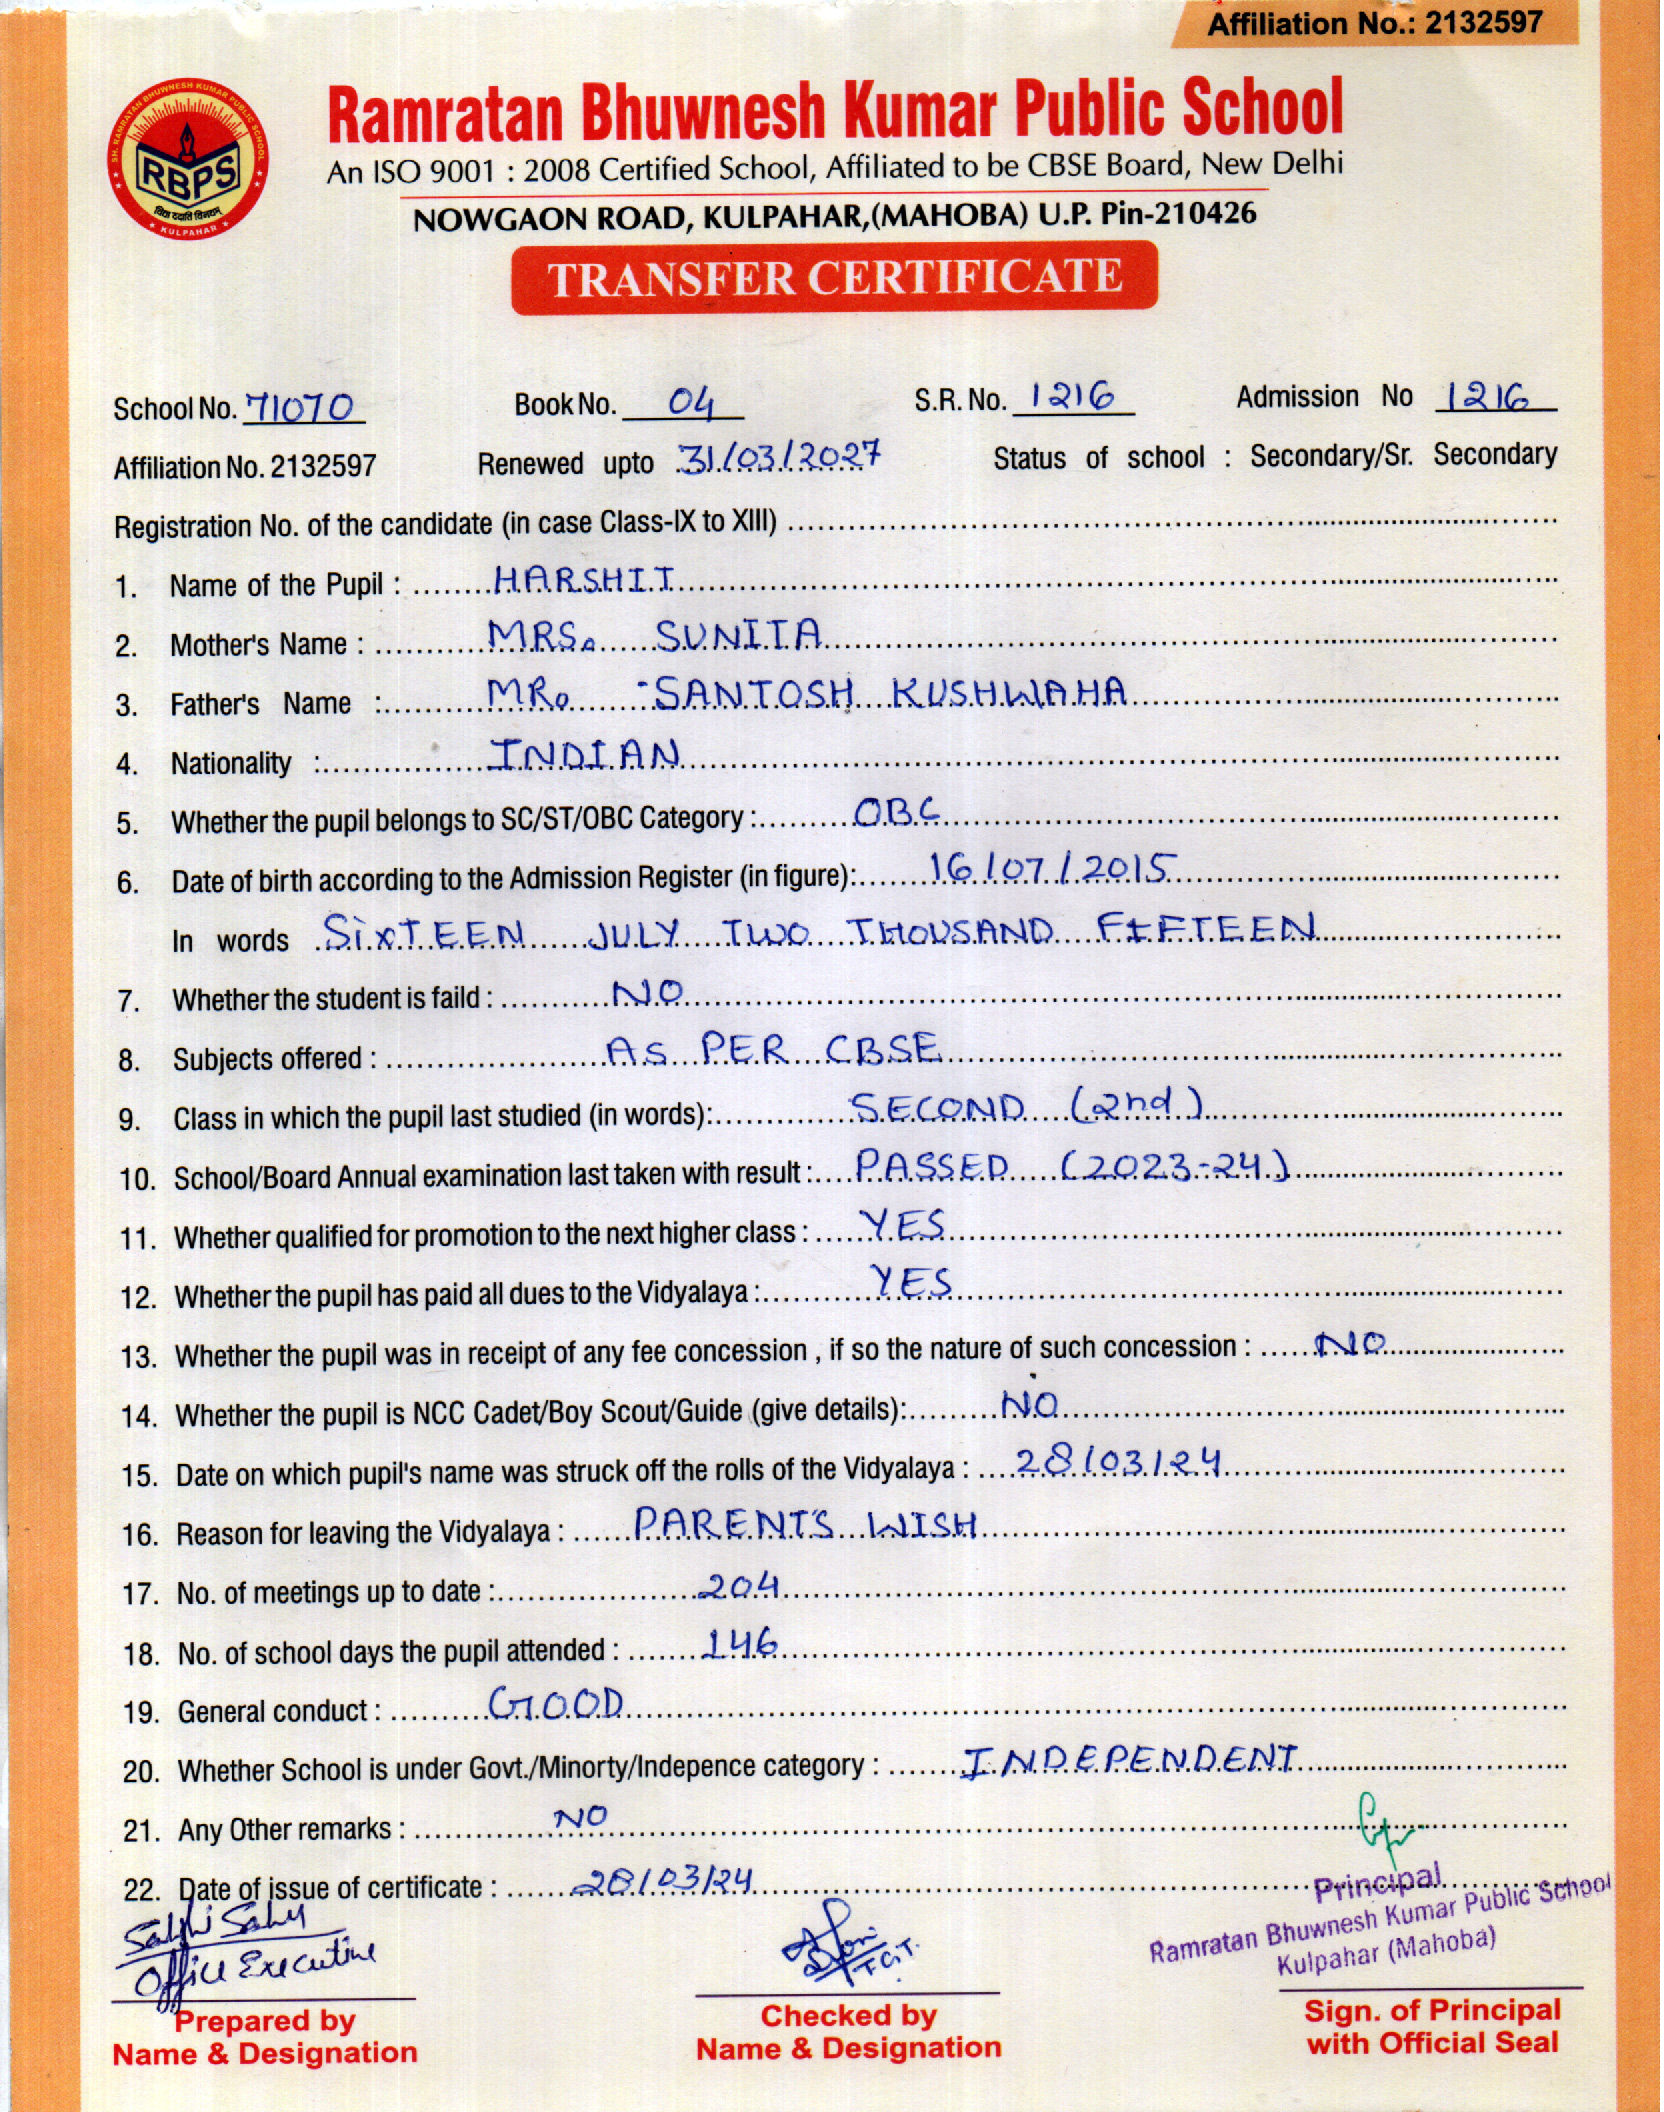 Affiliation No.: 2132597
SH. RAMRATAN BHUWNESH KUMAR PUBLIC SCHOOL
RBPS
विद्या ददाति विनयम्
KULPAHAR
Ramratan Bhuwnesh Kumar Public School
An ISO 9001 : 2008 Certified School, Affiliated to be CBSE Board, New Delhi
NOWGAON ROAD, KULPAHAR,(MAHOBA) U.P. Pin-210426
TRANSFER CERTIFICATE
School No. 71070 Book No. 04 S.R. No. 1216 Admission No 1216
Affiliation No. 2132597 Renewed upto 31/03/2027 Status of school : Secondary/Sr. Secondary
Registration No. of the candidate (in case Class-IX to XIII)
1. Name of the Pupil : HARSHIT
2. Mother's Name : MRS. SUNITA
3. Father's Name : MR. SANTOSH KUSHWAHA
4. Nationality : INDIAN
5. Whether the pupil belongs to SC/ST/OBC Category : OBC
6. Date of birth according to the Admission Register (in figure): 16/07/2015
In words SIXTEEN JULY TWO THOUSAND FIFTEEN
7. Whether the student is faild : NO
8. Subjects offered : AS PER CBSE
9. Class in which the pupil last studied (in words): SECOND (2nd)
10. School/Board Annual examination last taken with result : PASSED (2023-24)
11. Whether qualified for promotion to the next higher class : YES
12. Whether the pupil has paid all dues to the Vidyalaya : YES
13. Whether the pupil was in receipt of any fee concession , if so the nature of such concession : NO
14. Whether the pupil is NCC Cadet/Boy Scout/Guide (give details): NO
15. Date on which pupil's name was struck off the rolls of the Vidyalaya : 28/03/24
16. Reason for leaving the Vidyalaya : PARENT'S WISH
17. No. of meetings up to date : 204
18. No. of school days the pupil attended : 146
19. General conduct : GOOD
20. Whether School is under Govt./Minorty/Indepence category : INDEPENDENT
21. Any Other remarks : NO
22. Date of issue of certificate : 28/03/24
Sahu
Office Executive
T.G.T.
Principal
Ramratan Bhuwnesh Kumar Public School
Kulpahar (Mahoba)
Prepared by
Name & Designation
Checked by
Name & Designation
Sign. of Principal
with Official Seal